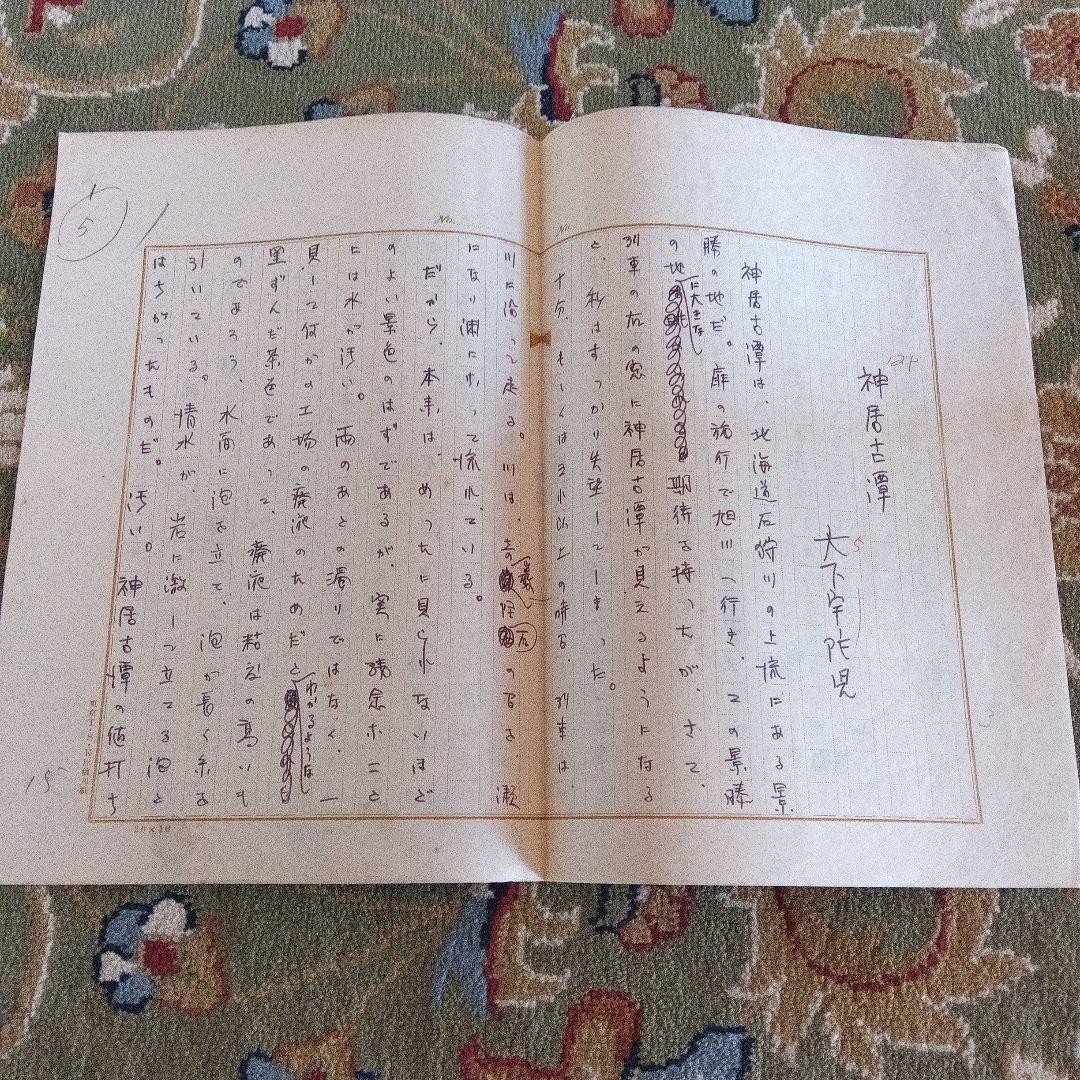 神居古潭
大下宇陀児
神居古潭は、北海道石狩川の上流にある景
勝の地だ。扉の旅行で旭川へ行き、この景勝
の地に大きな期待を持ったが、さて、
列車の左の窓に神居古潭が見えるようになる
と、私はすっかり失望してしまった。
十分、もしくはそれ以上の時召、列車は、
川に沿って走る。川は、奇巌怪石の召を、瀬
になり淵になって流れている。
だから、本来は、めったに見られないほど
のよい景色のはずであるが、実に残念なこと
には水が汚い。雨のあとの濁りではなく、一
見して何かの工場の廃液のためだとわかるような
黒ずんだ茶色であって、廃液は粘度の高いも
のであろう、水面に泡を立て、泡が長く糸を
引いている。清水が、岩に激して立てる泡と
はちがったものだ。汚い。神居古潭の値打ち
No.
No.
20×10
5
15
3
12P
5